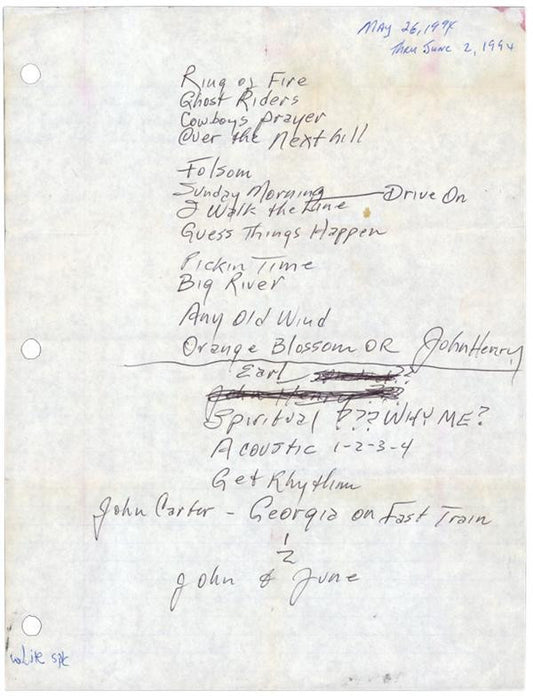 May 26, 1994
thru June 2, 1994
Ring of Fire
Ghost Riders
Cowboys Prayer
Over the Next hill
Folsom
Sunday Morning Drive On
I Walk the Line
Guess Things Happen
Pickin Time
Big River
Any Old Wind
Orange Blossom OR John Henry
Earl
John Henry
Spiritual ??? WHY ME?
Acoustic 1-2-3-4
Get Rhythm
John Carter - Georgia on Fast Train
1
2
John & June